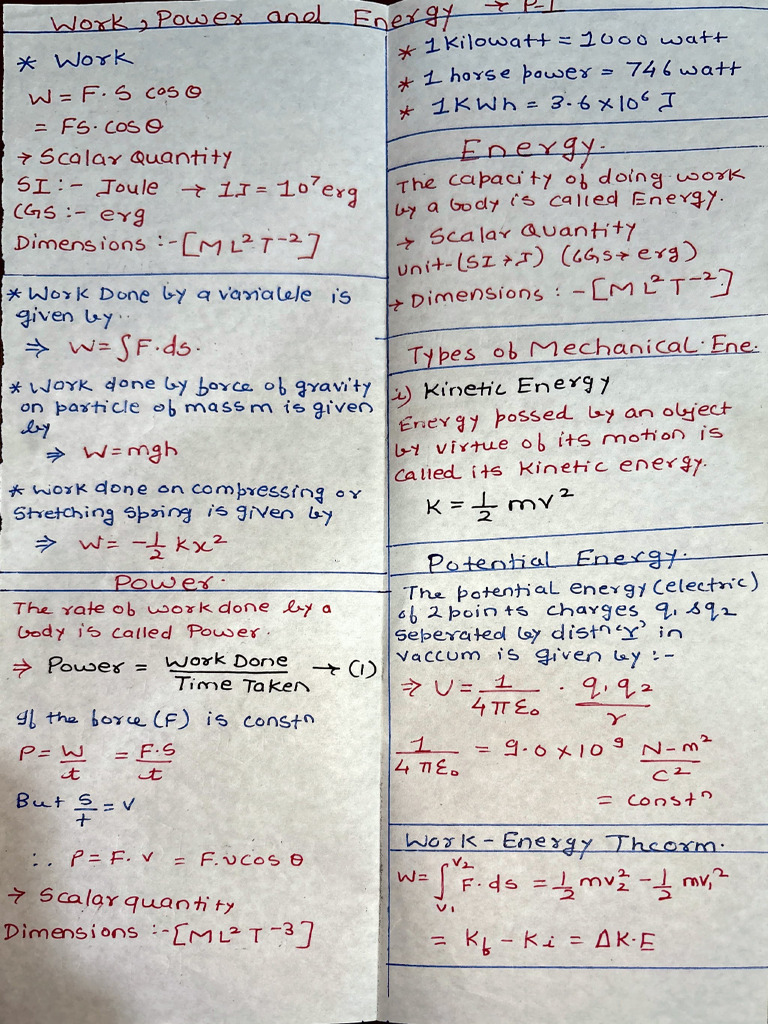 Work, Power and Energy → P-1
* Work
W = F. S cos θ
= FS. cos θ
→ Scalar Quantity
SI :- Joule → 1J = 10⁷ erg
CGS :- erg
Dimensions :- [ML²T⁻²]
* Work Done by a variable is
given by..
⇒ W = ∫F.ds.
* Work done by force of gravity
on particle of mass m is given
by
⇒ W = mgh
* Work done on compressing or
stretching spring is given by
⇒ W = -1/2 Kx²
Power.
The rate of work done by a
body is called Power.
⇒ Power = Work Done / Time Taken → (1)
If the force (F) is constⁿ
P = W/t = F.S/t
But S/t = v
∴ P = F. v = F.v cos θ
→ Scalar quantity
Dimensions :- [ML²T⁻³]
* 1 Kilowatt = 1000 watt
* 1 horse power = 746 watt
* 1 KWh = 3.6 × 10⁶ J
Energy.
The capacity of doing work
by a body is called Energy.
→ Scalar Quantity
unit- (SI → J) (CGS → erg)
→ Dimensions : - [ML²T⁻²]
Types of Mechanical Ene.
i) Kinetic Energy
Energy possed by an object
by virtue of its motion is
called its kinetic energy.
K = 1/2 mv²
Potential Energy.
The potential energy (electric)
of 2 points charges q₁ & q₂
seperated by distⁿ 'r' in
vaccum is given by :-
⇒ U = 1/4πε₀ . q₁q₂/r
1/4πε₀ = 9.0 × 10⁹ N-m²/C²
= constⁿ
Work-Energy Theorm.
W = ∫ᵥ₁ᵛ² F.ds = 1/2 mv₂² - 1/2 mv₁²
= Kf - Ki = ΔK.E